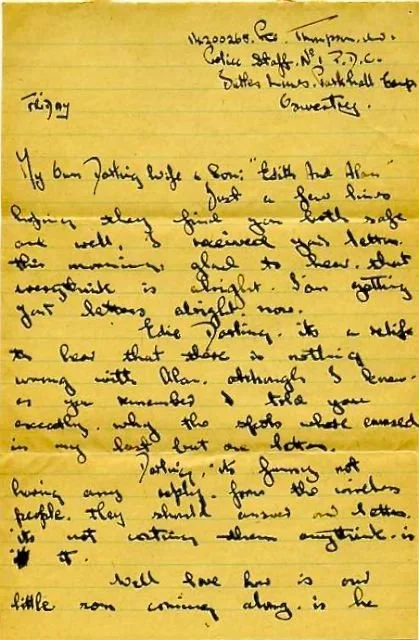 14200268. Pte. Thompson. W.
Office Staff. No 1 P.D.C.
Lines. Parkhall Camp
Oswestry.
Friday
My Own Darling Wife & Son: "Edith And Alan"
Just a few lines
hoping they find you both safe
and well. I received your letters
this morning. glad to hear that
everythink is alright. I am getting
your letters alright now.
Edie Darling. its a relife
to hear that there is nothing
wrong with Alan. although I knew.
as you remember I told you
excactley. why the spots where caused
in my last but one letter.
Darling, its funny not
having any reply. from the wireless
people. they should answer our letter.
its not costing them anythink. is
it.
Well love how is our
little son coming along. is he